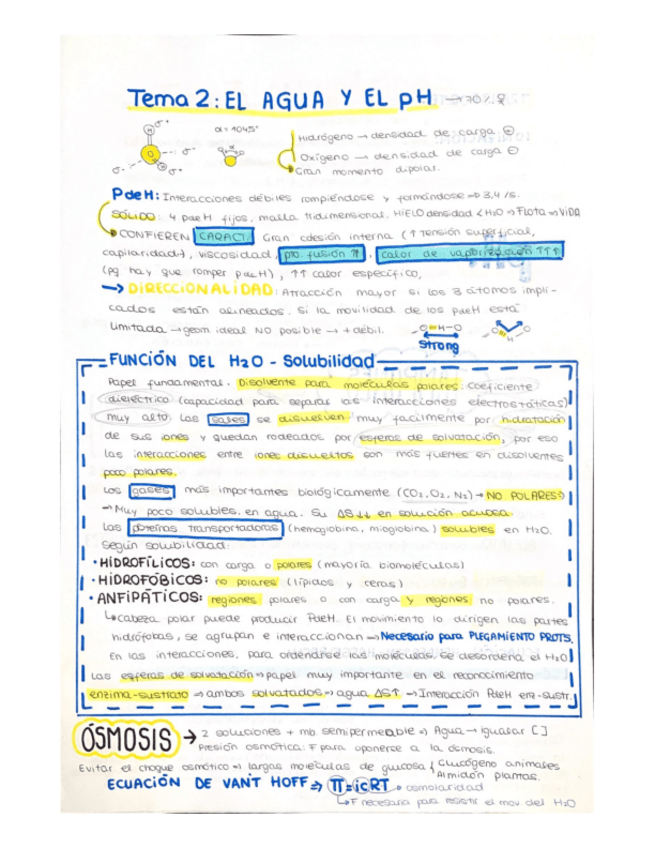 Tema 2: EL AGUA Y EL pH → 70%
α = 104'5°
Hidrógeno → densidad de carga ⊕
Oxígeno → densidad de carga ⊖
Gran momento dipolar.
PdeH: Interacciones débiles rompiéndose y formándose → 3,4 /s.
SÓLIDO: 4 PdeH fijos, malla tridimensional. HIELO densidad < H2O → Flota → VIDA
CONFIEREN CARACT. Gran cohesión interna (↑ Tensión superficial,
capilaridad), viscosidad, pto. fusión ↑, calor de vaporización ↑↑↑
(pq hay que romper PdeH), ↑↑ calor específico,
→ DIRECCIONALIDAD: Atracción mayor si los 3 átomos impli-
cados están alineados. Si la movilidad de los PdeH está
limitada → geom ideal NO posible → + débil.
strong
FUNCIÓN DEL H2O - Solubilidad
Papel fundamental. Disolvente para moléculas polares. Coeficiente
dieléctrico (capacidad para separar las interacciones electrostáticas)
muy alto. Las sales se disuelven muy facilmente por hidratación
de sus iones y quedan rodeados por esferas de solvatación, por eso
las interacciones entre iones disueltos son más fuertes en disolventes
poco polares.
Los gases más importantes biológicamente (CO2, O2, N2) → NO POLARES
→ Muy poco solubles en agua. Su ΔS↓↓ en solución acuosa.
Las proteínas transportadoras (hemoglobina, mioglobina) solubles en H2O.
Según solubilidad:
• HIDROFÍLICOS: con carga o polares (mayoría biomoléculas)
• HIDROFÓBICOS: no polares (lípidos y ceras)
• ANFIPÁTICOS: regiones polares o con carga y regiones no polares.
↳ cabeza polar puede producir PdeH. El movimiento lo dirigen las partes
hidrófobas, se agrupan e interaccionan → Necesario para PLEGAMIENTO PROTS.
En las interacciones, para ordenarse las moléculas se desordena el H2O
Las esferas de solvatación → papel muy importante en el reconocimiento
enzima-sustrato → ambos solvatados → agua ΔS↑ → Interacción PdeH enz-sustr.
ÓSMOSIS → 2 soluciones + mb. semipermeable → Agua → igualar [ ]
Presión osmótica: F para oponerse a la ósmosis.
Evitar el choque osmótico → largas moléculas de glucosa { Glucógeno animales
Almidón plantas.
ECUACIÓN DE VANT HOFF → π = icRT → osmolaridad
↳ F necesaria para resistir el mov del H2O